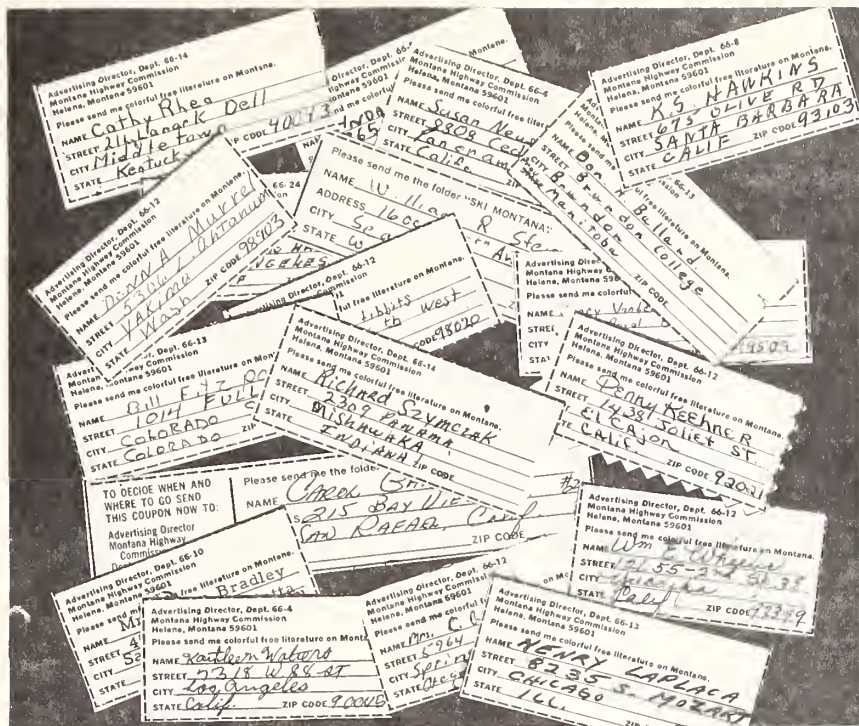 Advertising Director, Dept. 66-14
Montana Highway Commission
Helena, Montana 59601
Please send me colorful free literature on Montana.
NAME Cathy Rhea
STREET 214 Langck Dell
CITY Middletown
STATE Kentucky ZIP CODE 40043
Director, Dept. 66-
Highway Commission
59601
me colorful
Montana.
Advertising Director, Dept. 66-4
Montana Highway Commission
Helena, Montana 59601
Please send me colorful
NAME Susan
STREET 8808
CITY Panorama
STATE Calif.
Advertising Director, Dept. 66-8
Montana Highway Commission
Helena, Montana 59601
Please send me colorful free literature on Montana.
NAME K.G. HAWKINS
STREET 675 OLIVE RD
CITY SANTA BARBARA
STATE CALIF ZIP CODE 93103
Advertising Director, Dept. 66-12
Montana Highway Commission
Helena, Montana 59601
Please send me colorful free literature on Montana.
NAME DONNA Murrel
STREET 5306 L. Ahtanum
CITY YAKIMA
STATE Wash ZIP CODE 98903
66-24
ANGELES
Please send me the folder "SKI MONTANA":
NAME
ADDRESS
CITY
STATE
66-13
on Montana.
NAME Don Bulland
STREET Brandon College
CITY Brandon
STATE Manitoba
ZIP CODE
Advertising Director, Dept. 66-12
free literature on Montana.
Tibbits
th West
CODE 98020
Advertising
Montana Highway
Helena, Montana 596
Please send me colorful
NAME
STREET
CITY
STATE
49509
66-13
Helena, Montana 59601
Please send me colorful free literature on
NAME Bill Fitz
STREET 1014 FULL
CITY COLORADO
STATE COLORADO ZIP
Advertising Director, Dept. 66-14
Montana Highway Commission
Helena, Montana 59601
Please send me colorful free literature on Montana.
NAME Richard Szymczak
STREET 2309 PANAMA
CITY MISHAWAKA
STATE INDIANA ZIP CODE
Advertising Director, Dept. 66-12
Montana Highway Commission
Helena, Montana 59601
Please send me colorful free literature on Montana.
NAME Penny Keehner
STREET 1438 Joliet ST
CITY El Cajon
STATE Calif. ZIP CODE 92021
TO DECIDE WHEN AND
WHERE TO GO SEND
THIS COUPON NOW TO:
Advertising Director
Montana Highway
Please send me the folder
NAME CAROL
215 BAY VIE
SAN RAFAEL, Calif
ZIP CODE
Advertising Director, Dept. 66-12
Montana Highway Commission
Helena, Montana 59601
Please send me colorful free literature on Montana.
NAME Wm E Wheeler
STREET
CITY
STATE Calif ZIP CODE
Advertising Director, Dept. 66-10
Montana Highway Commission
Helena, Montana 59601
Please send me free literature on Montana.
NAME Bradley
STREET
CITY
STATE
Advertising Director, Dept. 66-4
Montana Highway Commission
Helena, Montana 59601
Please send me colorful free literature on Montana
NAME Kathleen Waters
STREET 7318 W 88 ST
CITY Los Angeles
STATE Calif. ZIP CODE 90045
Advertising Director, Dept. 66-12
Montana Highway
Helena, Montana 59601
Please send me colorful
NAME Mrs. C
STREET 5964
CITY Spring
STATE
Advertising Director, Dept. 66-13
Montana Highway Commission
Helena, Montana 59601
Please send me colorful free literature on Montana.
NAME HENRY LAPLACA
STREET 8235 S. MOZART
CITY CHICAGO
STATE ILL. ZIP CODE